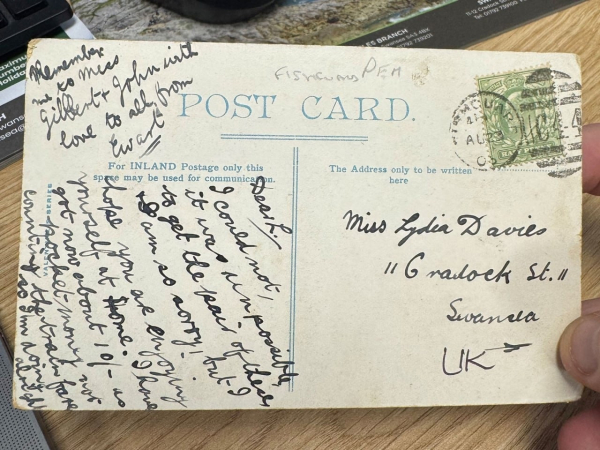 Remember
me to Miss
Gilbert & John with
love to all from
Ewart
FISHGUARD PEM
POST CARD.
For INLAND Postage only this
space may be used for communication.
The Address only to be written
here
Dear L.
I could not,
it was impossible
to get the pair of these
& I am so sorry! but I
hope you are enjoying
yourself at home. I have
got now about 10/- as
pocket money not
counting the train fare
so I'm doing
alright
Miss Lydia Davies
"6 Cradock St."
Swansea
UK
BRANCH